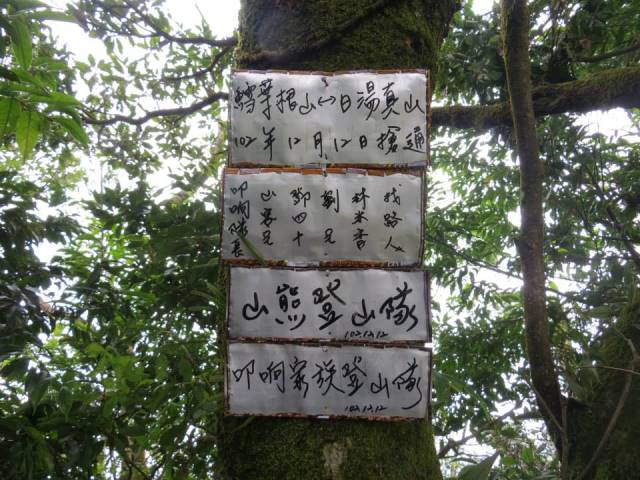 鸞葉根山↔日湯真山
102年12月12日搶通
找路人
林米香
劉兄
鄧四十
山客兄
叩响隊長
山熊登山隊
102.12.12
叩响家族登山隊
102.12.12